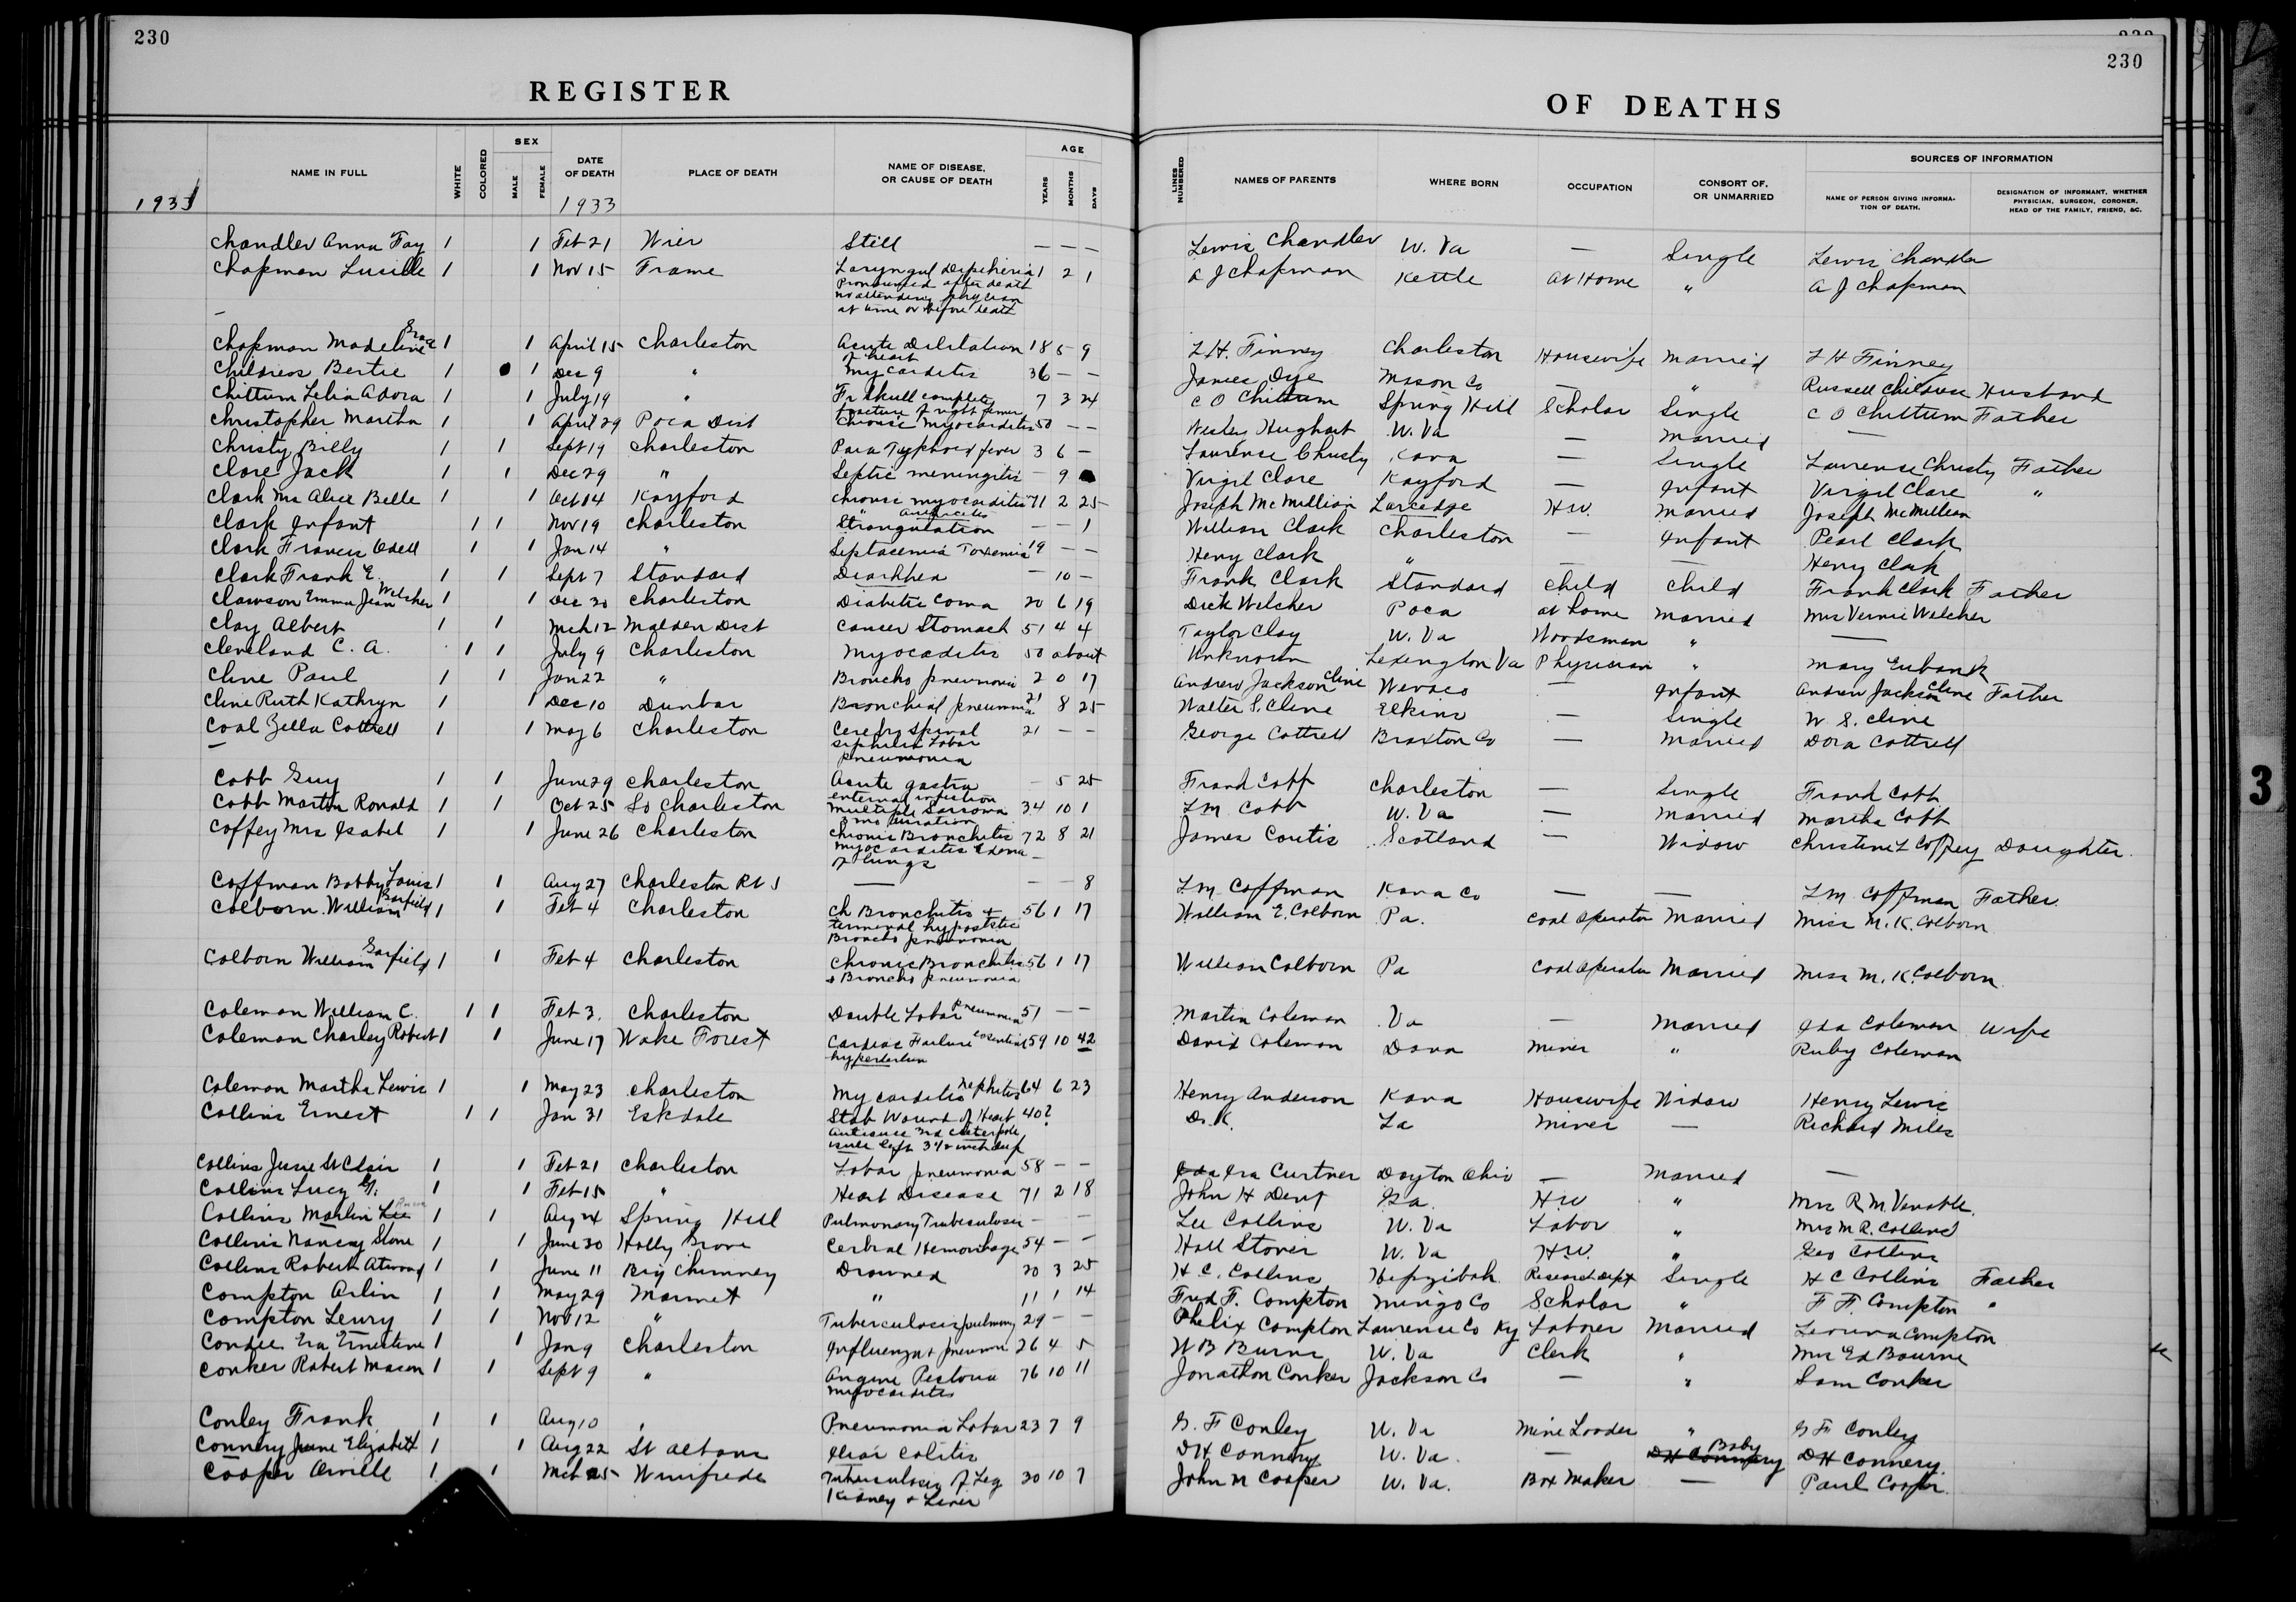 230
230
REGISTER
OF DEATHS
1933
NAME IN FULL WHITE COLORED SEX MALE FEMALE DATE OF DEATH 1933 PLACE OF DEATH NAME OF DISEASE, OR CAUSE OF DEATH AGE YEARS MONTHS DAYS LINES NUMBERED NAMES OF PARENTS WHERE BORN OCCUPATION CONSORT OF, OR UNMARRIED SOURCES OF INFORMATION NAME OF PERSON GIVING INFORMATION OF DEATH. DESIGNATION OF INFORMANT, WHETHER PHYSICIAN, SURGEON, CORONER, HEAD OF THE FAMILY, FRIEND, &C.
Chandler Anna Fay 1 1 Feb 21 Wier Still — — — Lewis Chandler W. Va — Single Lewis Chandler
Chapman Lucille 1 1 Nov 15 Frame Laryngul Dipitheria 1 2 1 A J Chapman Kettle At Home " A J Chapman
pronounced after death
no attending physician
at time or before death
Chapman Madeline Grace 1 1 April 15 Charleston Acute Dilitation of heart 18 5 9 L H. Finney Charleston Housewife Married L H Finney
Childress Bertie 1 1 Dec 9 " Mycarditis 36 — — James Dye Mason Co — " Russell Childress Husband
Chittum Lelia Adora 1 1 July 19 " Fr Skull complete 7 3 24 C O Chittum Spring Hill Scholar Single C O Chittum Father
fracture of right femur
Christopher Martha 1 1 April 29 Poca Dist Chronic Myocarditis 50 — — Wesley Hughart W. Va — Married —
Christy Billy 1 1 Sept 19 Charleston Para Typhoid fever 3 6 — Laurense Christy Kana — Single Laurense Christy Father
Clare Jack 1 1 Dec 29 " Septic meningitis — 9 Virgil Clare Kayford — Infant Virgil Clare "
Clark Mrs Alice Belle 1 1 Oct 14 Kayford Chronic myocarditis 71 2 25 Joseph McMillian H W. Married Joseph McMillian
Clark Infant 1 1 Nov 19 Charleston Strangulation — — 1 William Clark Charleston — Infant Pearl Clark
Clark Francis Odell 1 1 Jan 14 " Septacemia Toxemia 19 — — Henry Clark " — — Henry Clark
Clark Frank E. 1 1 Sept 7 Standard Diarhhea — 10 — Frank Clark Standard Child Child Frank Clark Father
Clawson Emma Jean Welcher 1 1 Dec 30 Charleston Diabetic Coma 20 6 19 Dick Welcher Poca at home Married Mrs Vernie Welcher
Clay Albert 1 1 Mch 12 Malden Dist Cancer Stomach 51 4 4 Taylor Clay W. Va Woodsman " —
Cleveland C. A. 1 1 July 9 Charleston Myocaditis 50 about Unknown Lexington Va Physician " Mary Eubank
Cline Paul 1 1 Jan 22 " Broncho pneumonia 2 0 17 Andrew Jackson Cline — Infant Andrew Jackson Cline Father
Cline Ruth Kathryn 1 1 Dec 10 Dunbar Bronchial pneumonia 21 8 25 Walter S. Cline Elkins — Single W. S. Cline
Coal Zella Cottrell 1 1 May 6 Charleston Cerebro Spinal 21 — — George Cottrell Braxton Co — Married Dora Cottrell
siphilis Lobar
pneumonia
Cobb Guy 1 1 June 29 Charleston Acute gastro — 5 25 Frank Cobb Charleston — Single Frank Cobb
enternal infection
Cobb Martin Ronald 1 1 Oct 25 So Charleston Multiple Sarcoma 34 10 1 L M. Cobb W. Va — Married Martha Cobb
3 mo duration
Coffey Mrs Isabel 1 1 June 26 Charleston Chronic Bronchitis 72 8 21 James Coutis Scotland — Widow Christine L Coffey Daughter
Myocarditis Edema
of lungs
Coffman Bobby Louis 1 1 Aug 27 Charleston Rt 5 — — — 8 L M. Coffman Kana Co — — L M. Coffman Father
Colborn William Garfield 1 1 Feb 4 Charleston Ch Bronchitis + 56 1 17 William E. Colborn Pa. Coal Operator Married Miss M. K. Colborn
terminal hypostatic
Broncho pneumonia
Colborn William Garfield 1 1 Feb 4 Charleston Chronic Bronchitis 56 1 17 William Colborn Pa Coal Operator Married Miss M. K. Colborn
& Broncho pneumonia
Coleman William C. 1 1 Feb 3. Charleston Double Lobar Pneumonia 51 — — Martin Coleman Va — Married Ida Coleman Wife
Coleman Charley Robert 1 1 June 17 Wake Forest Cardiac Failure Essential 59 10 42 David Coleman Dana Miner " Ruby Coleman
hypertention
Coleman Martha Lewis 1 1 May 23 Charleston Mycarditis Nephritis 64 6 23 Henry Anderson Kana Housewife Widow Henry Lewis
Collins Ernest 1 1 Jan 31 Eskdale Stab Wound of Heart 40? D. K. La Miner — Richard Miles
Collins Jesse St Clair 1 1 Feb 21 Charleston Lobar pneumonia 58 — — Ira Curtner Dayton Ohio — Married —
Collins Lucy G. 1 1 Feb 15 " Heart Disease 71 2 18 John H Dent Ga. H W " Mrs R. M. Venable.
Collins Marlin Lee 1 1 Aug 24 Spring Hill Pulmonary Tuberculosis — — — Lee Collins W. Va Labor " Mrs M R. Collins
Collins Nancy Stone 1 1 June 30 Holly Grove Cerbral Hemorrhage 54 — — Hall Stover W. Va H W. " Geo Collins
Collins Robert Atwood 1 1 June 11 Big Chimney Drowned 20 3 25 H. C. Collins Hepzibah Research Dept Single H C Collins Father
Compton Arlin 1 1 May 29 Marmet " 11 1 14 Fred F. Compton Mingo Co Scholar " F F. Compton "
Compton Leury 1 1 Nov 12 " Tuberculosis pulmony 29 — — Phelix Compton Lawrence Co Ky Laborer Married Compton
Condee Era Ernestine 1 1 Jan 9 Charleston Influenza + pneumon 26 4 5 W B Burns W. Va Clerk " Mrs Ed Bourne
Conker Robert Mason 1 1 Sept 9 " Angine Pectoria 76 10 11 Jonathon Conker Jackson Co — " Sam Conker
Myocarditis
Conley Frank 1 1 Aug 10 " Pneumonia Lobar 23 7 9 G. F Conley W. Va Mine Loader " G F. Conley
Connery June Elizabeth 1 1 Aug 22 St Albans Colitis D H Connery W. Va. — Baby D H Connery.
Cooper Orville 1 1 Mch 25 Winifrede Tuberculosis of Leg 30 10 7 John N Cooper W. Va. Box Maker — Paul Cooper.
Kidney & Liver
3